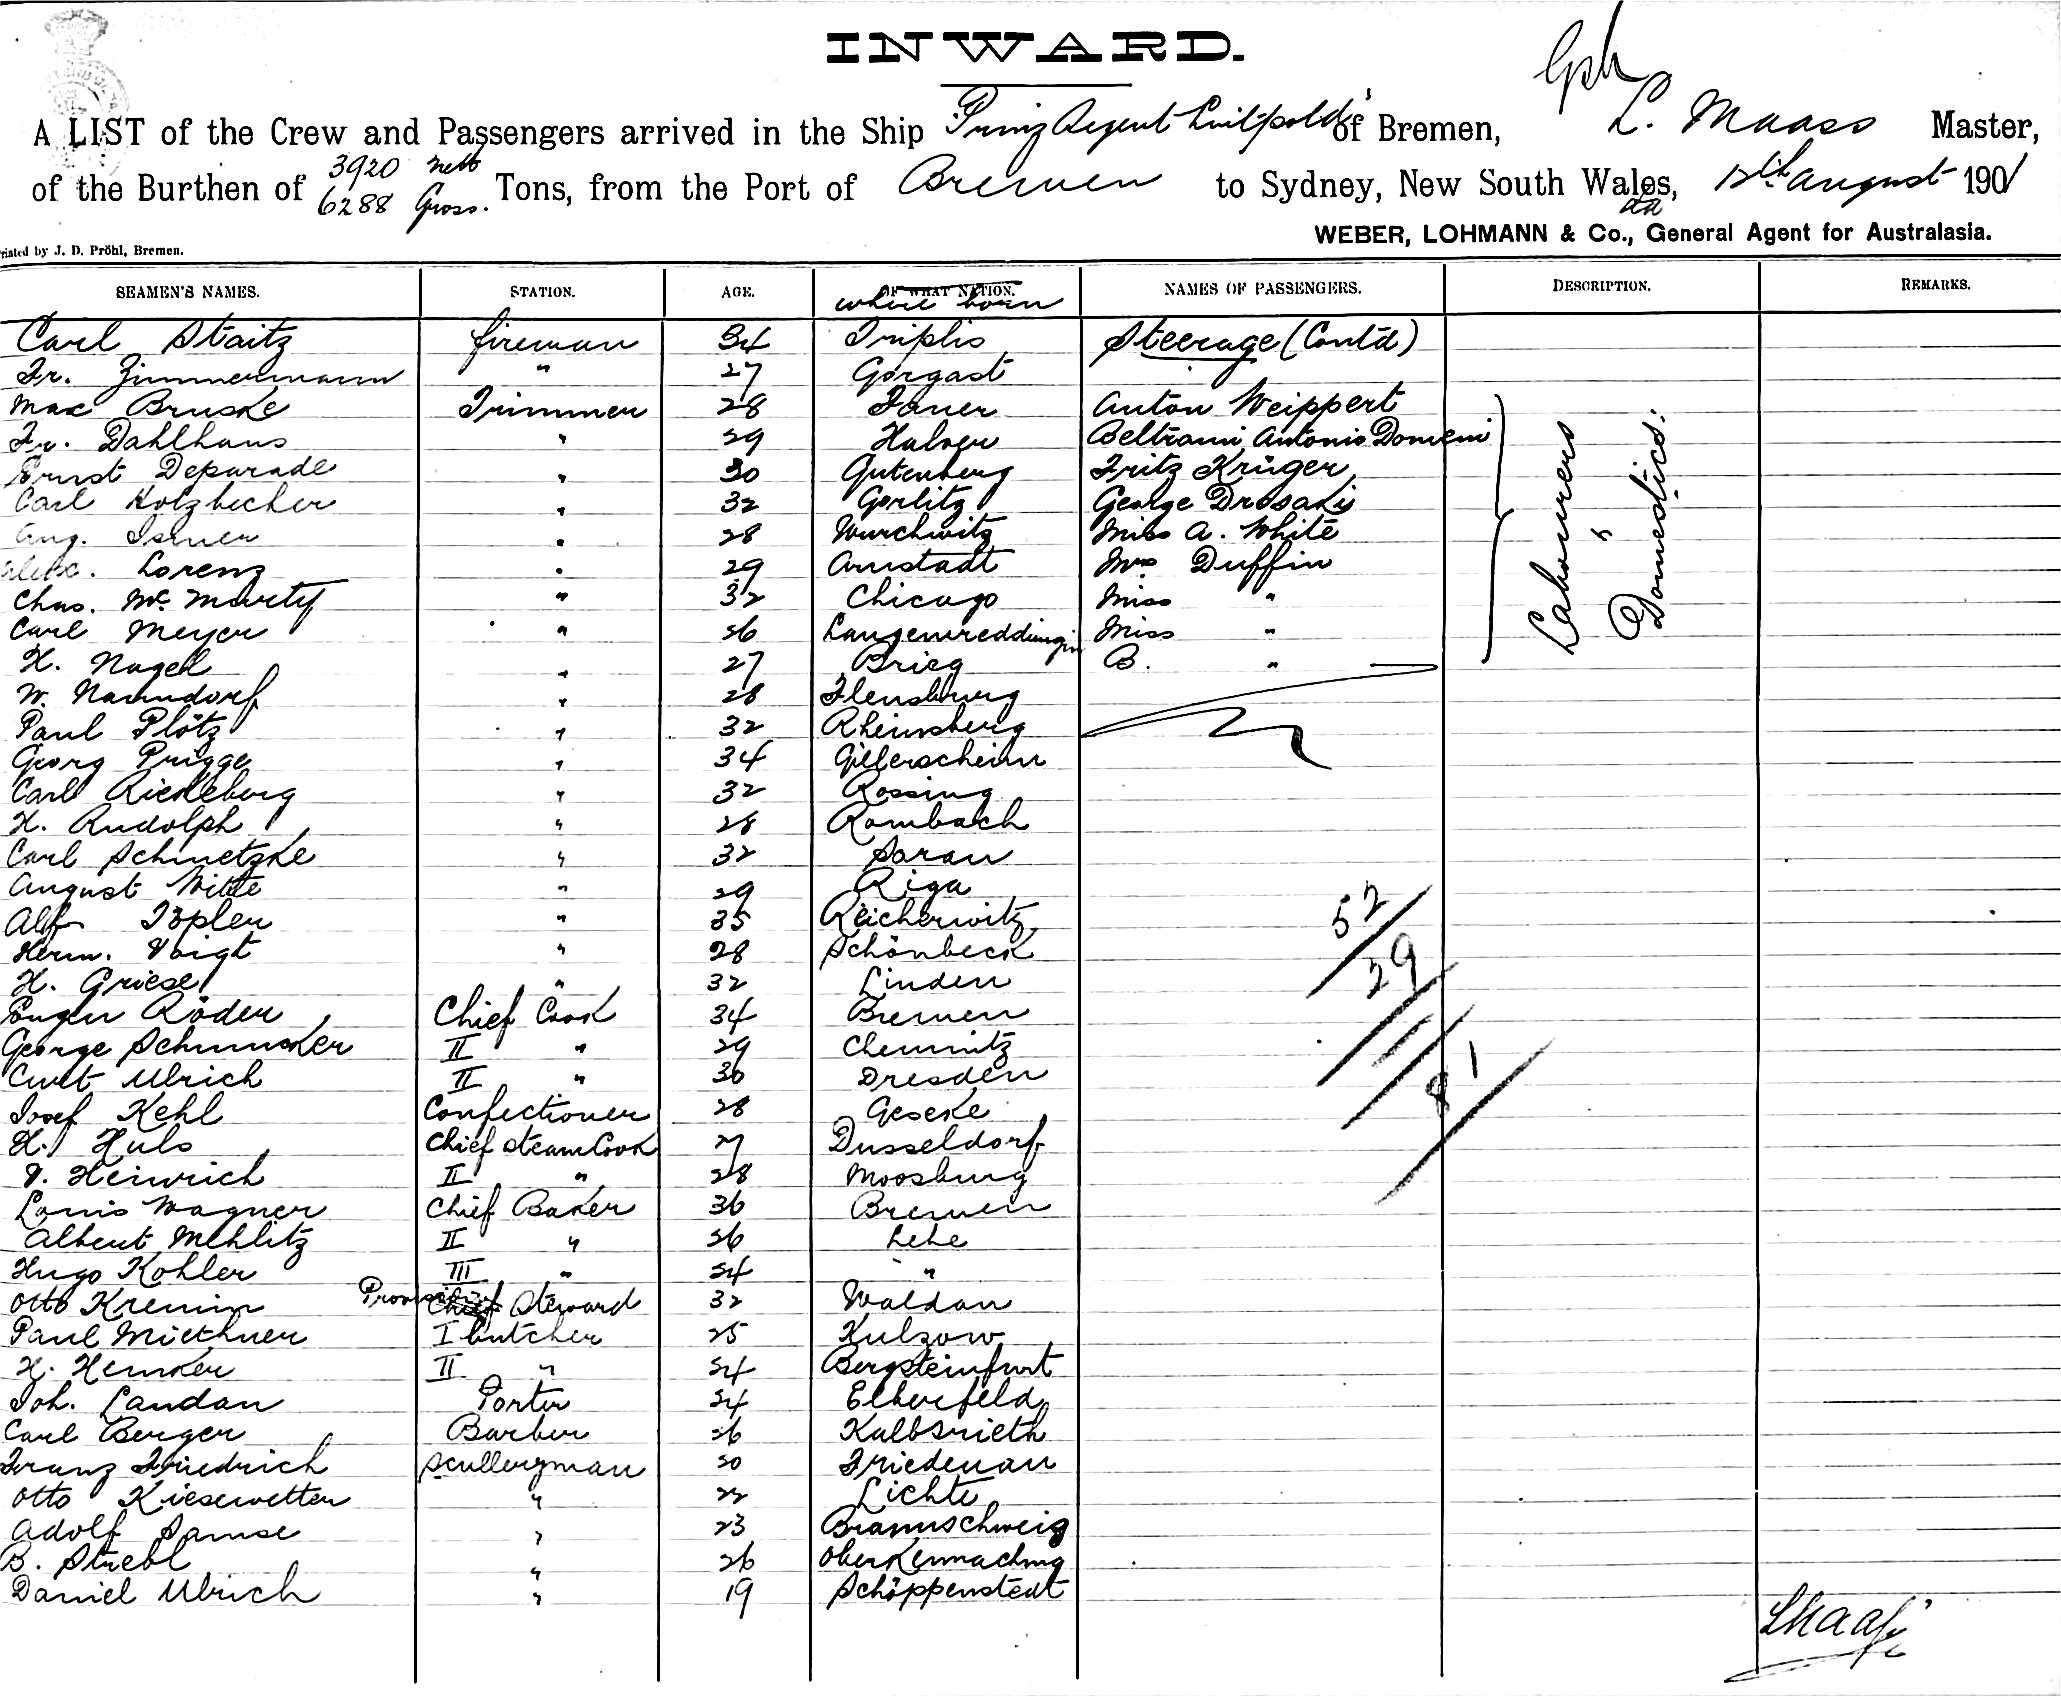 INWARD.
Gph
A LIST of the Crew and Passengers arrived in the Ship "Prinz Regent Luitpold" of Bremen, L. Maass Master,
of the Burthen of 3920 nett 6288 Gross. Tons, from the Port of Bremen to Sydney, New South Wales, 12th August 1901
WEBER, LOHMANN & Co., General Agent for Australasia.
Printed by J. D. Pröhl, Bremen.
SEAMEN'S NAMES. STATION. AGE. OF WHAT NATION. NAMES OF PASSENGERS. DESCRIPTION. REMARKS.
where born
Carl Staitz fireman 34 Triplis Steerage (Contd)
Fr. Zimmermann " 27 Gorgast
Max Bruske Trimmer 28 Jauer Anton Weippert
Fr. Dahlhaus " 29 Halver Beltrami Antonio Domeni
Ernst Deparade " 30 Gutenberg Fritz Krüger
Carl Holzbecher " 32 Gorlitz George Drosaki
Aug. Isruer " 28 Wurchwitz Miss A. White
Alex. Lorenz " 29 Arnstadt Mrs Duffin
Chas. McMurty " 32 Chicago Miss "
Carl Meyer " 26 Langenreddingin Miss "
H. Nagel " 27 Brieg B. "
Labourers
"
Domestics.
W. Naundorf " 28 Flensburg
Paul Plötz " 32 Rheinsberg
Georg Prigge " 34 Gillerscheim
Carl Riekeberg " 32 Rossing
H. Rudolph " 28 Rombach
Carl Schmetzke " 32 Sorau
August Witte " 29 Riga
Alf Töpler " 35 Reicherwitz
Herm. Voigt " 28 Schönbeck
H. Griese " 32 Linden
Eugen Röder Chief Cook 34 Bremen
George Schmucker II " 29 Chemnitz
Curt Ulrich II " 30 Dresden
Josef Kehl Confectioner 28 Geseke
H. Huls Chief Steam Cook 27 Dusseldorf
V. Heinrich II " 28 Moosburg
Louis Wagner Chief Baker 36 Bremen
Albert Mehlitz II " 26 Lehe
Hugo Kohler III " 24 "
Otto Kremin Provision Chief Steward 32 Waldau
Paul Miethner I butcher 25 Kulzow
H. Hemker II " 24 Bergsteinfurt
Joh. Landau Porter 24 Elberfeld
Carl Berger Barber 26 Kalbsrieth
Franz Friedrich Scullergman 20 Friedenau
Otto Kiesewetter " 22 Lichte
Adolf Samse " 23 Braunschweig
B. Strebl " 26 Oberkenmaching
Daniel Ulrich " 19 Schöppenstedt
52
29
81
LMaaß